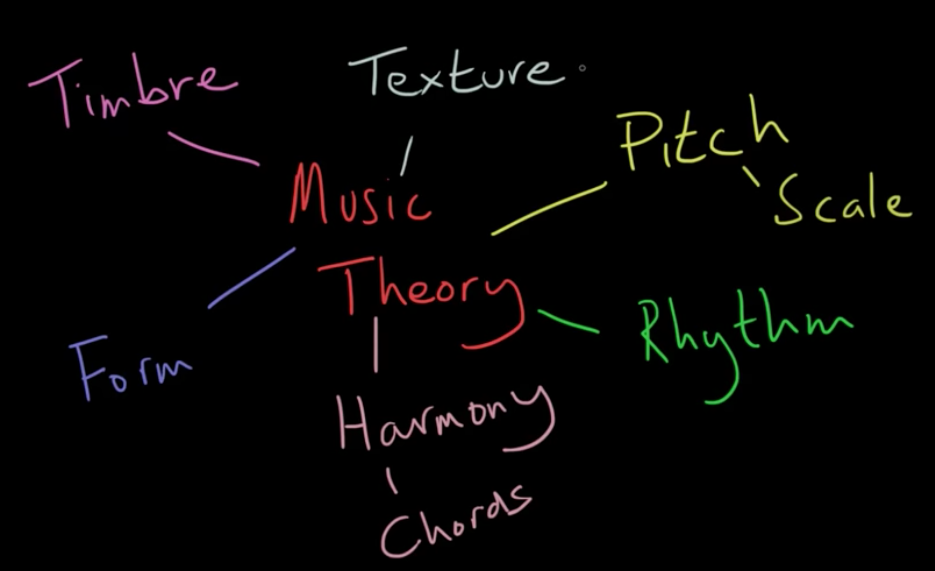 Timbre
Texture
Pitch
Scale
Music
Theory
Rhythm
Form
Harmony
Chords